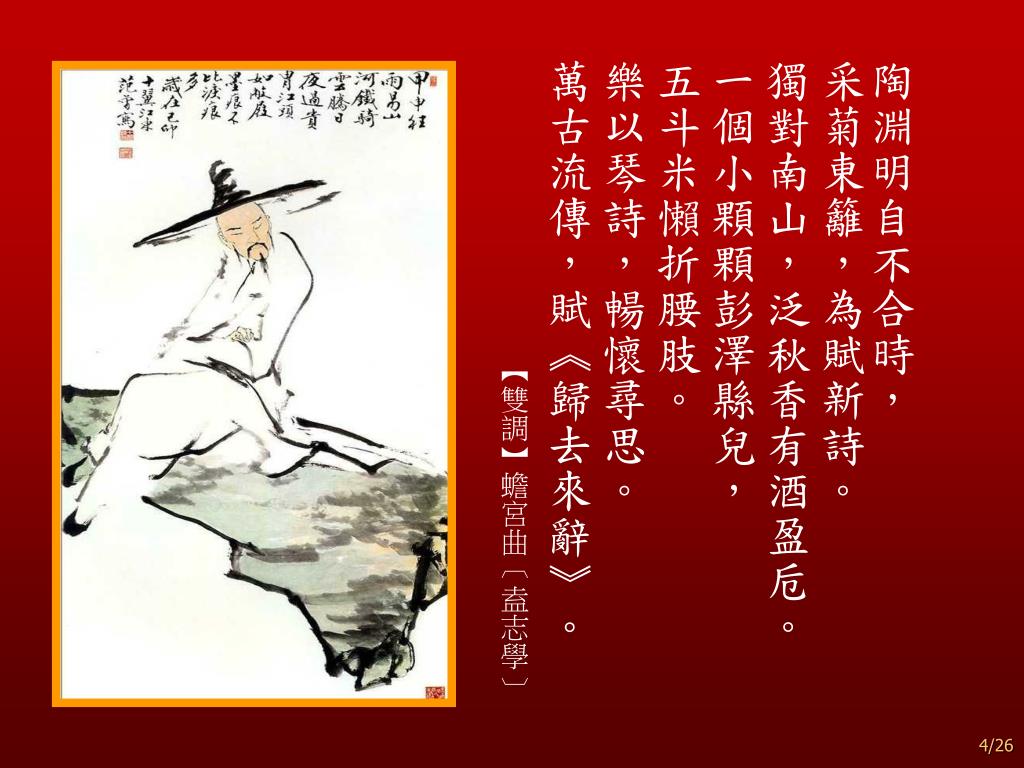 陶淵明自不合時，
采菊東籬，為賦新詩。
獨對南山，泛秋香有酒盈卮。
一個小顆顆彭澤縣兒，
五斗米懶折腰肢。
樂以琴詩，暢懷尋思。
萬古流傳，賦《歸去來辭》。
【雙調】蟾宮曲〔盇志學〕
甲申
雨易山
河鐵騎
雲騰日
夜過貴
胄江頭
如敝屐
墨痕不
比淚痕
多
歲在己卯
十翼江東
范曾寫
4/26